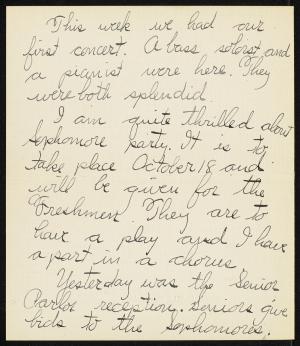 This week we had our
first concert. A bass soloist and
a pianist were here. They
were both splendid.
I am quite thrilled about
Sophomore party. It is to
take place October 18 and
will be given for the
Freshmen. They are to
have a play and I have
a part in a chorus.
Yesterday was the Senior
Parlor reception. Seniors give
bids to the Sophomores.